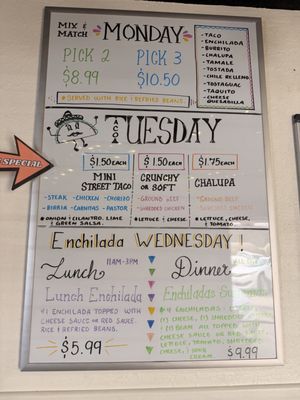 MIX &
MATCH
MONDAY
PICK 2
$8.99
PICK 3
$10.50
* SERVED WITH RICE & REFRIED BEANS.
- TACO
- ENCHILADA
- BURRITO
- CHALUPA
- TAMALE
- TOSTADA
- CHILE RELLENO
- TOSTAGUAC
- TAQUITO
- CHEESE
QUESADILLA
SPECIAL
TACO
TUESDAY
$1.50 EACH
MINI
STREET TACO
- STEAK - CHICKEN - CHORIZO
- BIRRIA - CARNITAS - PASTOR
* ONION & CILANTRO, LIME
& GREEN SALSA.
$1.50 EACH
CRUNCHY
OR SOFT
- GROUND BEEF
- SHREDDED CHICKEN
* LETTUCE & CHEESE
$1.75 EACH
CHALUPA
- GROUND BEEF
CHICKEN
* LETTUCE, CHEESE, &
TOMATO.
Enchilada WEDNESDAY!
Lunch
11AM-3PM
Lunch Enchilada
#1 ENCHILADA TOPPED WITH
CHEESE SAUCE OR RED SAUCE
RICE & REFRIED BEANS.
$5.99
Dinner
Enchiladas
4 ENCHILADAS
CHEESE, (1) SHREDDED
(1) BEAN ALL TOPPED WITH
CHEESE SAUCE OR RED SAUCE,
LETTUCE, TOMATO, SHREDDED
CHEESE, & SOUR
CREAM.
$9.99